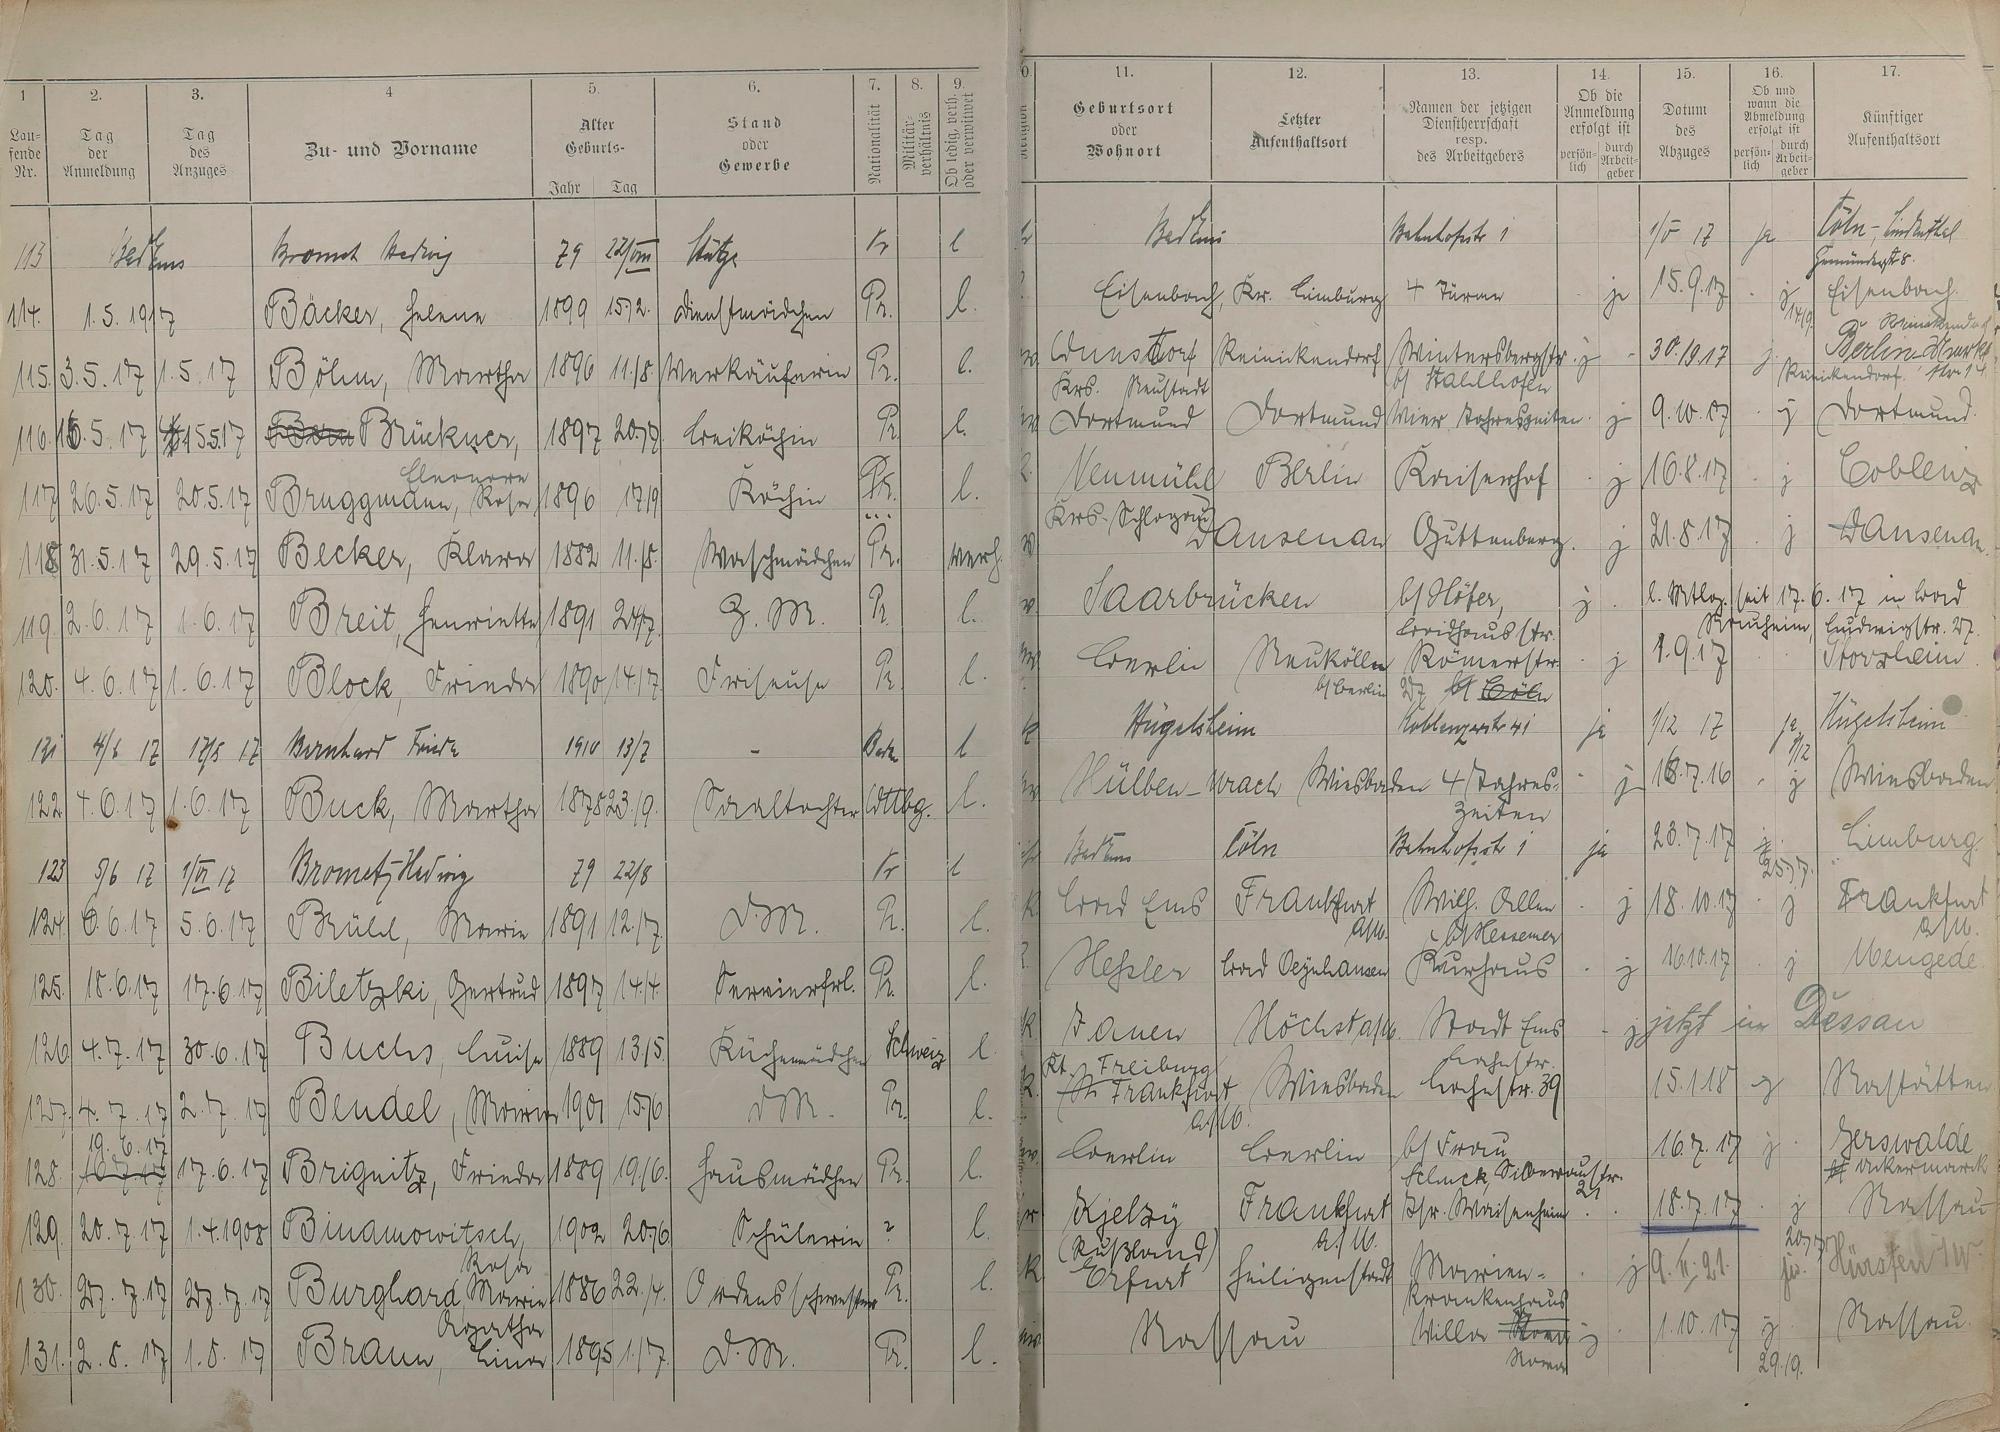 1 2. 3. 4 5. 6. 7. 8. 9. 11. 12. 13. 14. 15. 16. 17.
Lau-fende Nr. Tag der Anmeldung Tag des Anzuges Zu- und Vorname Alter Geburts- Jahr Tag Stand oder Gewerbe Nationalität Militär-verhältnis Ob ledig, verh. oder verwitwet Religion Geburtsort oder Wohnort Letzter Aufenthaltsort Namen der jetzigen Dienstherrschaft resp. des Arbeitgebers Ob die Anmeldung erfolgt ist persön-lich durch Arbeit-geber Datum des Abzuges Ob und wann die Abmeldung erfolgt ist persön-lich durch Arbeit-geber Künftiger Aufenthaltsort
113 Bad Ems Bromet Hedwig 79 22/VIII Stütze Pr l Bad Ems Bahnhofstr 1 1/5 17 ja Cöln-Lindenthal
114. 1.5.1917 Bäcker, Helene 1899 15./2. Dienstmädchen Pr. l. Eisenbach, Kr. Limburg 4 Türme je 15.9.17 j 14/9. Eisenbach.
115. 3.5.17 1.5.17 Böhm, Martha 1896 11./8 Verkäuferin Pr. l. Wunstorf Krs. Neustadt Reinickendorf Wintersbergstr. b/ Stahlhofen j 30.10.17 j. Berlin Reinickendorf.
116. 16.5.17 15.5.17 Brückner, Eleonore 1897 20./9. Beiköchin Pr. l. Dortmund Dortmund Vier Jahreszeiten j 9.10.17 j Dortmund.
117 26.5.17 20.5.17 Bruggmann, Rosa 1896 17/9 Köchin Pr. l. Neumühl Krs. Berlin Kaiserhof j 16.8.17 j Coblenz
118 31.5.17 29.5.17 Becker, Klara 1882 11./8. Waschmädchen Pr. verh. Dausenau Guttenberg. j 21.8.17 j Dausenau.
119. 2.6.17 1.6.17 Breit, Henriette 1891 24/7. Z. M. Pr l. Saarbrücken b/ Höfer, Badhausstr. j l. Mtlg. seit 17.6.17 in Bad Nauheim, Ludwigstr. 27.
120. 4.6.17 1.6.17 Block, Frieda 1890 14/7. Friseuse Pr. l. Berlin Neukölln b/ Berlin Römerstr. 27 b/ Cöln j 1.9.17
121 4/6 17 17/5 17 Bernhard Frieda 1910 13/7 - Baden l k Hügelsheim Koblenzerstr 41 ja 1/12 17 ja 1/12 Hügelsheim
122 4.6.17 1.6.17 Buck, Martha 1878 23./9. Saaltochter Wttbg. l. Hülben-Urach Wiesbaden 4 Jahres-zeiten j 18.7.16 j Wiesbaden
123 5/6 17 1/VI 17 Brometz Hedwig 79 22/8 Pr l Bad Ems Cöln Bahnhofstr 1 ja 23.7.17 j. 25./7. Limburg.
124. 6.6.17 5.6.17 Brühl, Marie 1891 12./7. D.M. Pr. l. k. Bad Ems Frankfurt a/M. Wilh. Allee b/ Hessemer j 18.10.17 j Frankfurt a/M.
125. 18.6.17 17.6.17 Biletzki, Gertrud 1897 14./4. Servierfrl. Pr. l. Hessler Bad Oeynhausen Kurhaus j 16.10.17 j Mengede
126 4.7.17 30.6.17 Buchs, Luise 1889 13./5. Küchenmädchen Schweiz l. k Jauen Kt. Freiburg Höchst a/M. Stadt Ems Lahnstr. j jetzt in Dessau
127. 4.7.17 2.7.17 Bendel, Marie 1901 15./6 D M. Pr. l. k. Frankfurt a/M. Wiesbaden Lahnstr. 39 15.1.18 j Nastätten
128. 19.6.17 17.6.17 Brignitz, Frieda 1889 19/6. Hausmädchen Pr. l. Berlin Berlin b/ Frau Schuck, Silberaustr. 21 16.7.17 j Gerswalde Uckermarck
129. 20.7.17 1.4.1908 Binamowitsch, Rosa 1902 20./6 Schülerin ? l. Kjelzy (Rußland) Frankfurt a/M. Isr. Waisenheim 18.7.17 j 20/7 Nassau
130. 27.7.17 27.7.17 Burghard, Marie Agatha 1886 22./4. Ordensschwester Pr. l. k Erfurt Heiligenstadt Marien-krankenhaus j 9.II.21.
131. 2.8.17 1.8.17 Braun, Lina 1895 1./7. D.M. Pr. l. Nassau Villa Roma j 1.10.17 j 29./9. Nassau.